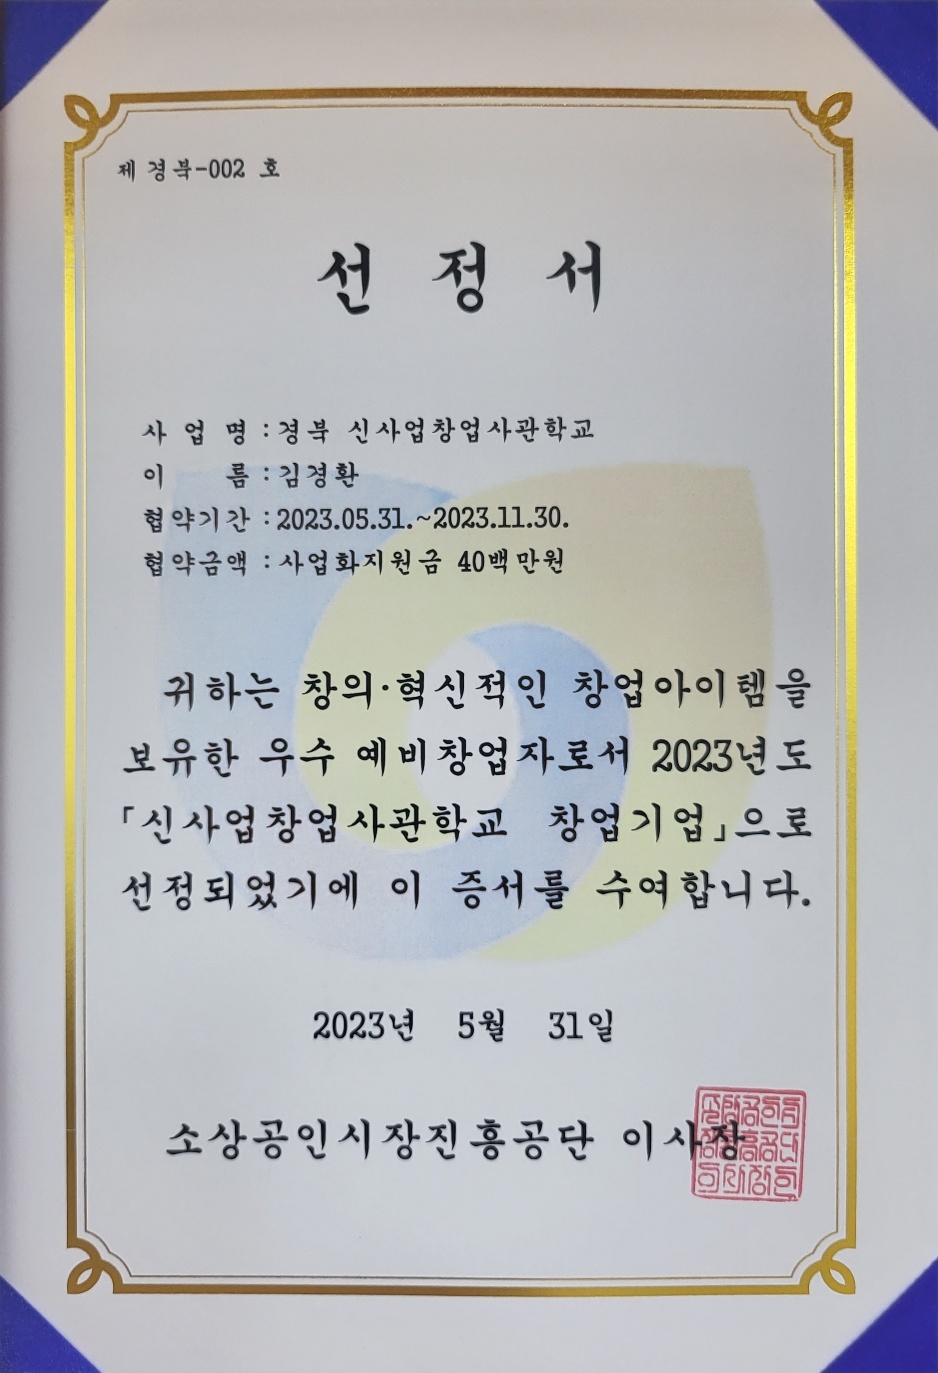 제 경북-002 호
선 정 서
사 업 명 : 경북 신사업창업사관학교
이 름 : 김경환
협약기간 : 2023.05.31.~2023.11.30.
협약금액 : 사업화지원금 40백만원
귀하는 창의·혁신적인 창업아이템을
보유한 우수 예비창업자로서 2023년도
「신사업창업사관학교 창업기업」으로
선정되었기에 이 증서를 수여합니다.
2023년 5월 31일
소상공인시장진흥공단 이사장